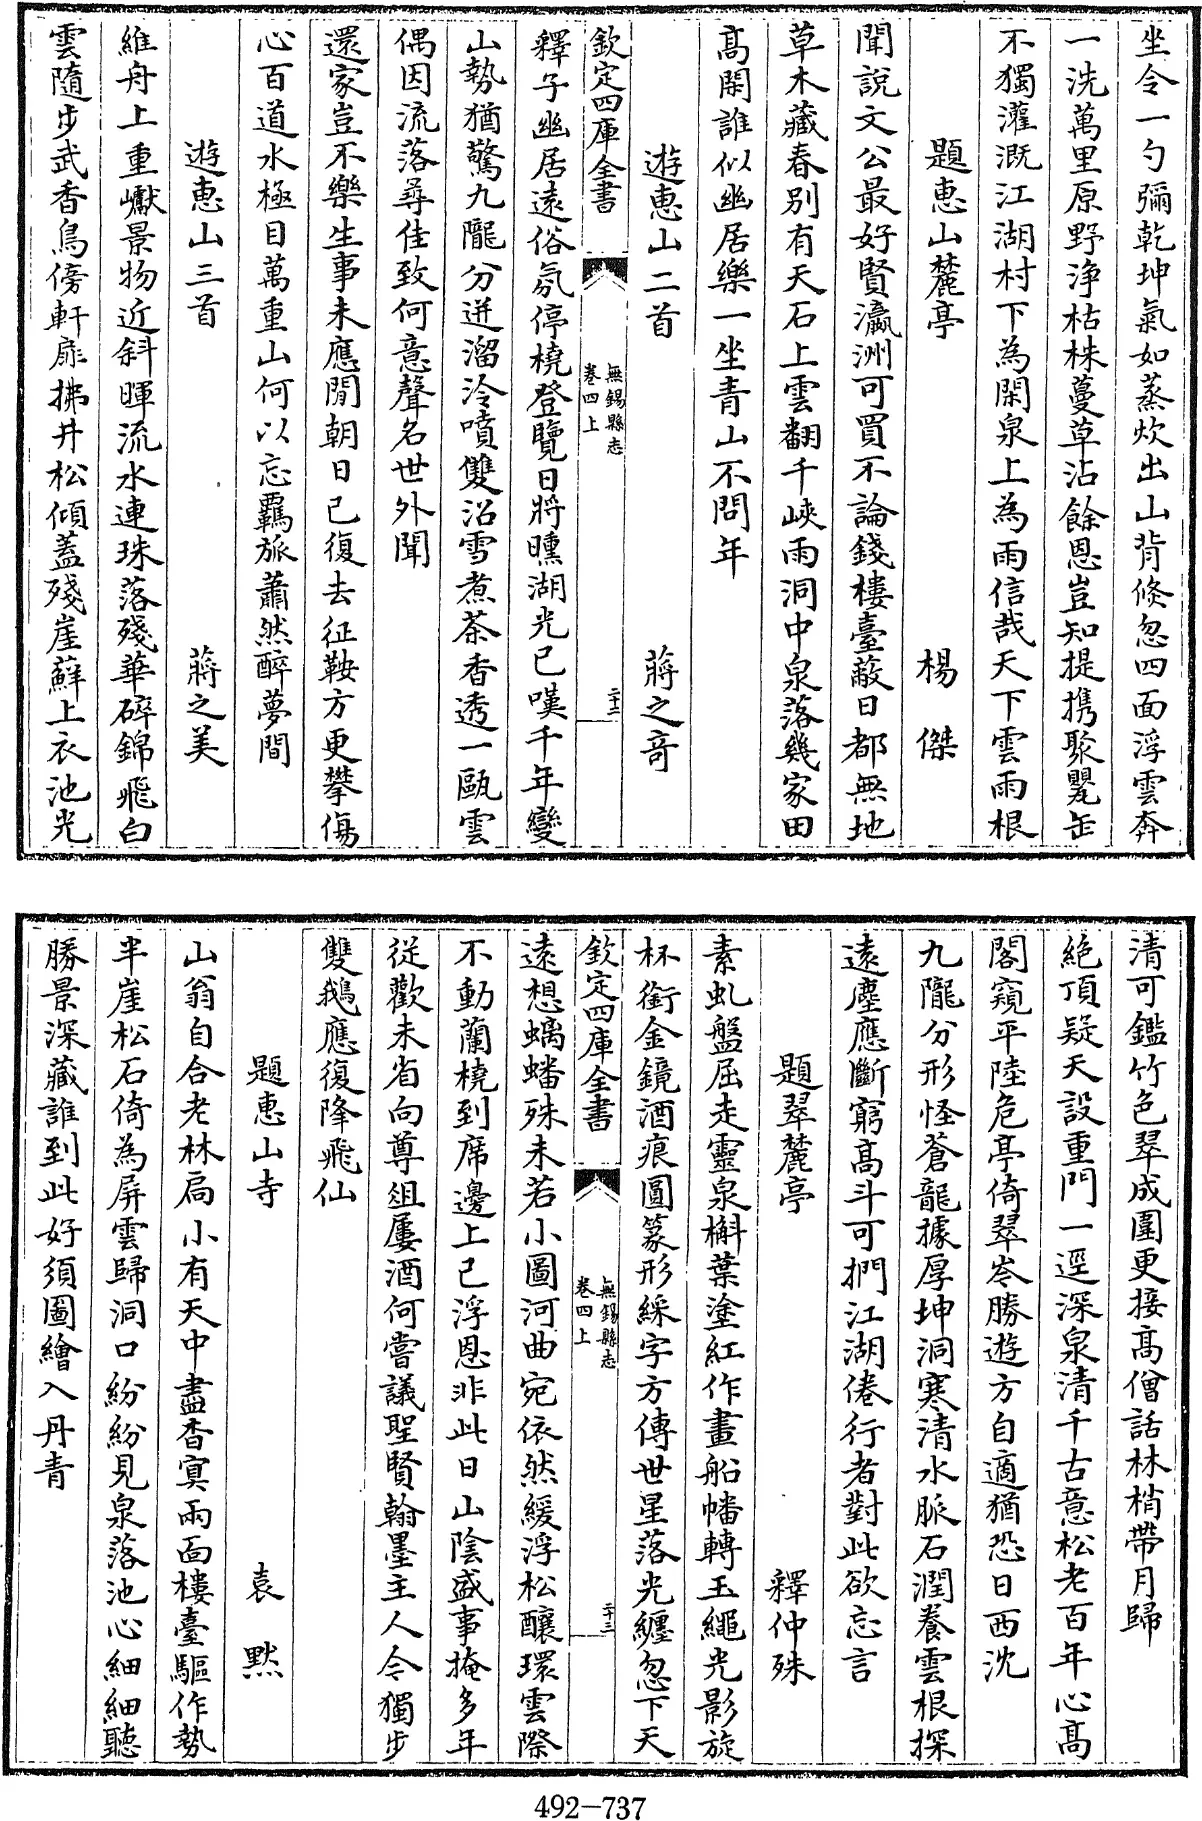 坐令一勺彌乾坤氣如蒸炊出山背倏忽四面浮雲奔
一洗萬里原野淨枯株蔓草沾餘恩豈知提攜聚甖缶
不獨灌溉江湖村下為閑泉上為雨信哉天下雲雨根
題惠山麓亭　楊傑
聞說文公最好賢瀛洲可買不論錢樓臺蔽日都無地
草木藏春別有天石上雲翻千峽雨洞中泉落幾家田
高閑誰似幽居樂一坐青山不問年
遊惠山二首　蔣之奇
欽定四庫全書　無錫縣志卷四上　二十二
釋子幽居遠俗氛停橈登覽日將曛湖光已嘆千年變
山勢猶驚九隴分迸溜泠噴雙沼雪煮茶香透一甌雲
偶因流落尋佳致何意聲名世外聞
還家豈不樂生事未應閒朝日已復去征鞍方更攀傷
心百道水極目萬重山何以忘羈旅蕭然醉夢間
遊惠山三首　蔣之美
維舟上重巘景物近斜暉流水連珠落殘華碎錦飛白
雲隨步武香鳥傍軒扉拂井松傾蓋殘崖蘚上衣池光
清可鑑竹色翠成圍更接高僧話林梢帶月歸
絶頂疑天設重門一逕深泉清千古意松老百年心高
閣窺平陸危亭倚翠岑勝遊方自適猶恐日西沈
九隴分形怪蒼龍據厚坤洞寒清水脈石潤養雲根探
遠塵應斷窮高斗可捫江湖倦行者對此欲忘言
題翠麓亭　釋仲殊
素虬盤屈走靈泉槲葉塗紅作畫船幡轉玉繩光影旋
杯銜金鏡酒痕圓篆形綵字方傳世星落光纏忽下天
欽定四庫全書　無錫縣志卷四上　二十三
遠想螭蟠殊未若小圖河曲宛依然緩浮松釀環雲際
不動蘭橈到席邊上已浮恩非此日山陰盛事掩多年
從歡未省向尊俎屢酒何嘗議聖賢翰墨主人令獨步
雙鵝應復降飛仙
題惠山寺　袁默
山翁自合老林扃小有天中盡杳冥兩面樓臺驅作勢
半崖松石倚為屏雲歸洞口紛紛見泉落池心細細聽
勝景深藏誰到此好須圖繪入丹青
492-737